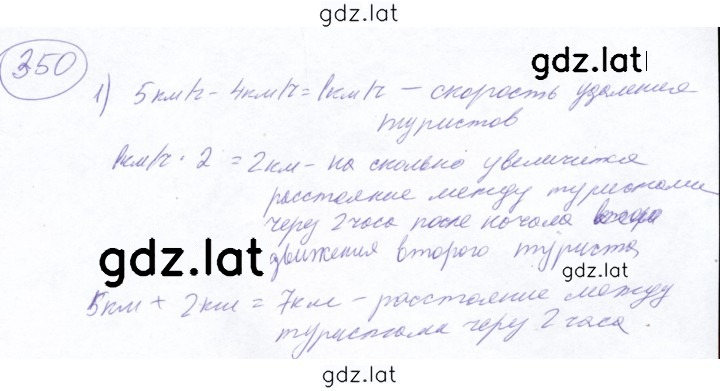 gdz.lat
350
gdz.lat
1) 5км/ч - 4км/ч = 1км/ч - скорость удаления
туристов
1км/ч · 2 = 2км - на сколько увеличится
расстояние между туристами
через 2 часа после начала
движения второго туриста
gdz.lat
gdz.lat
5км + 2км = 7км - расстояние между
туристами через 2 часа.
gdz.lat